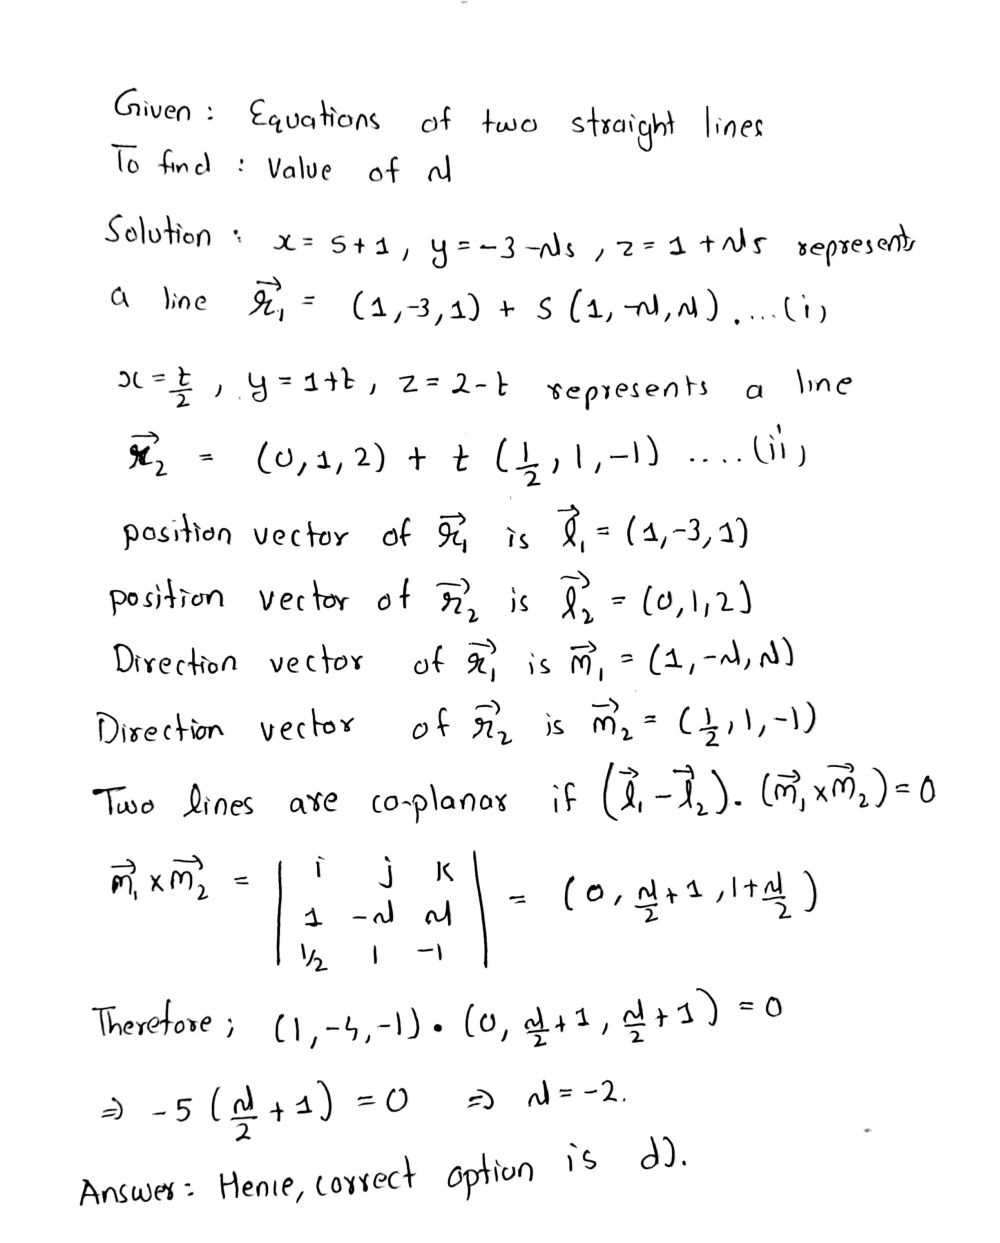 Given : Equations of two straight lines
To find : Value of λ
Solution : x = s+1, y = -3 -λs, z = 1 + λs represents
a line r⃗₁ = (1,-3,1) + s (1, -λ, λ). ...(i)
x = t/2, y = 1+t, z = 2-t represents a line
r⃗₂ = (0,1,2) + t (1/2, 1, -1) ....(ii)
position vector of r⃗₁ is l⃗₁ = (1,-3,1)
position vector of r⃗₂ is l⃗₂ = (0,1,2)
Direction vector of r⃗₁ is m⃗₁ = (1,-λ, λ)
Direction vector of r⃗₂ is m⃗₂ = (1/2, 1, -1)
Two lines are co-planar if (l⃗₁ - l⃗₂). (m⃗₁ x m⃗₂) = 0
m⃗₁ x m⃗₂ = | i j k |
| 1 -λ λ | = (0, λ/2 + 1, 1+ λ/2)
| 1/2 1 -1 |
Therefore; (1, -4, -1) • (0, λ/2 + 1, λ/2 + 1) = 0
⇒ -5 (λ/2 + 1) = 0 ⇒ λ = -2.
Answer : Hence, correct option is d).